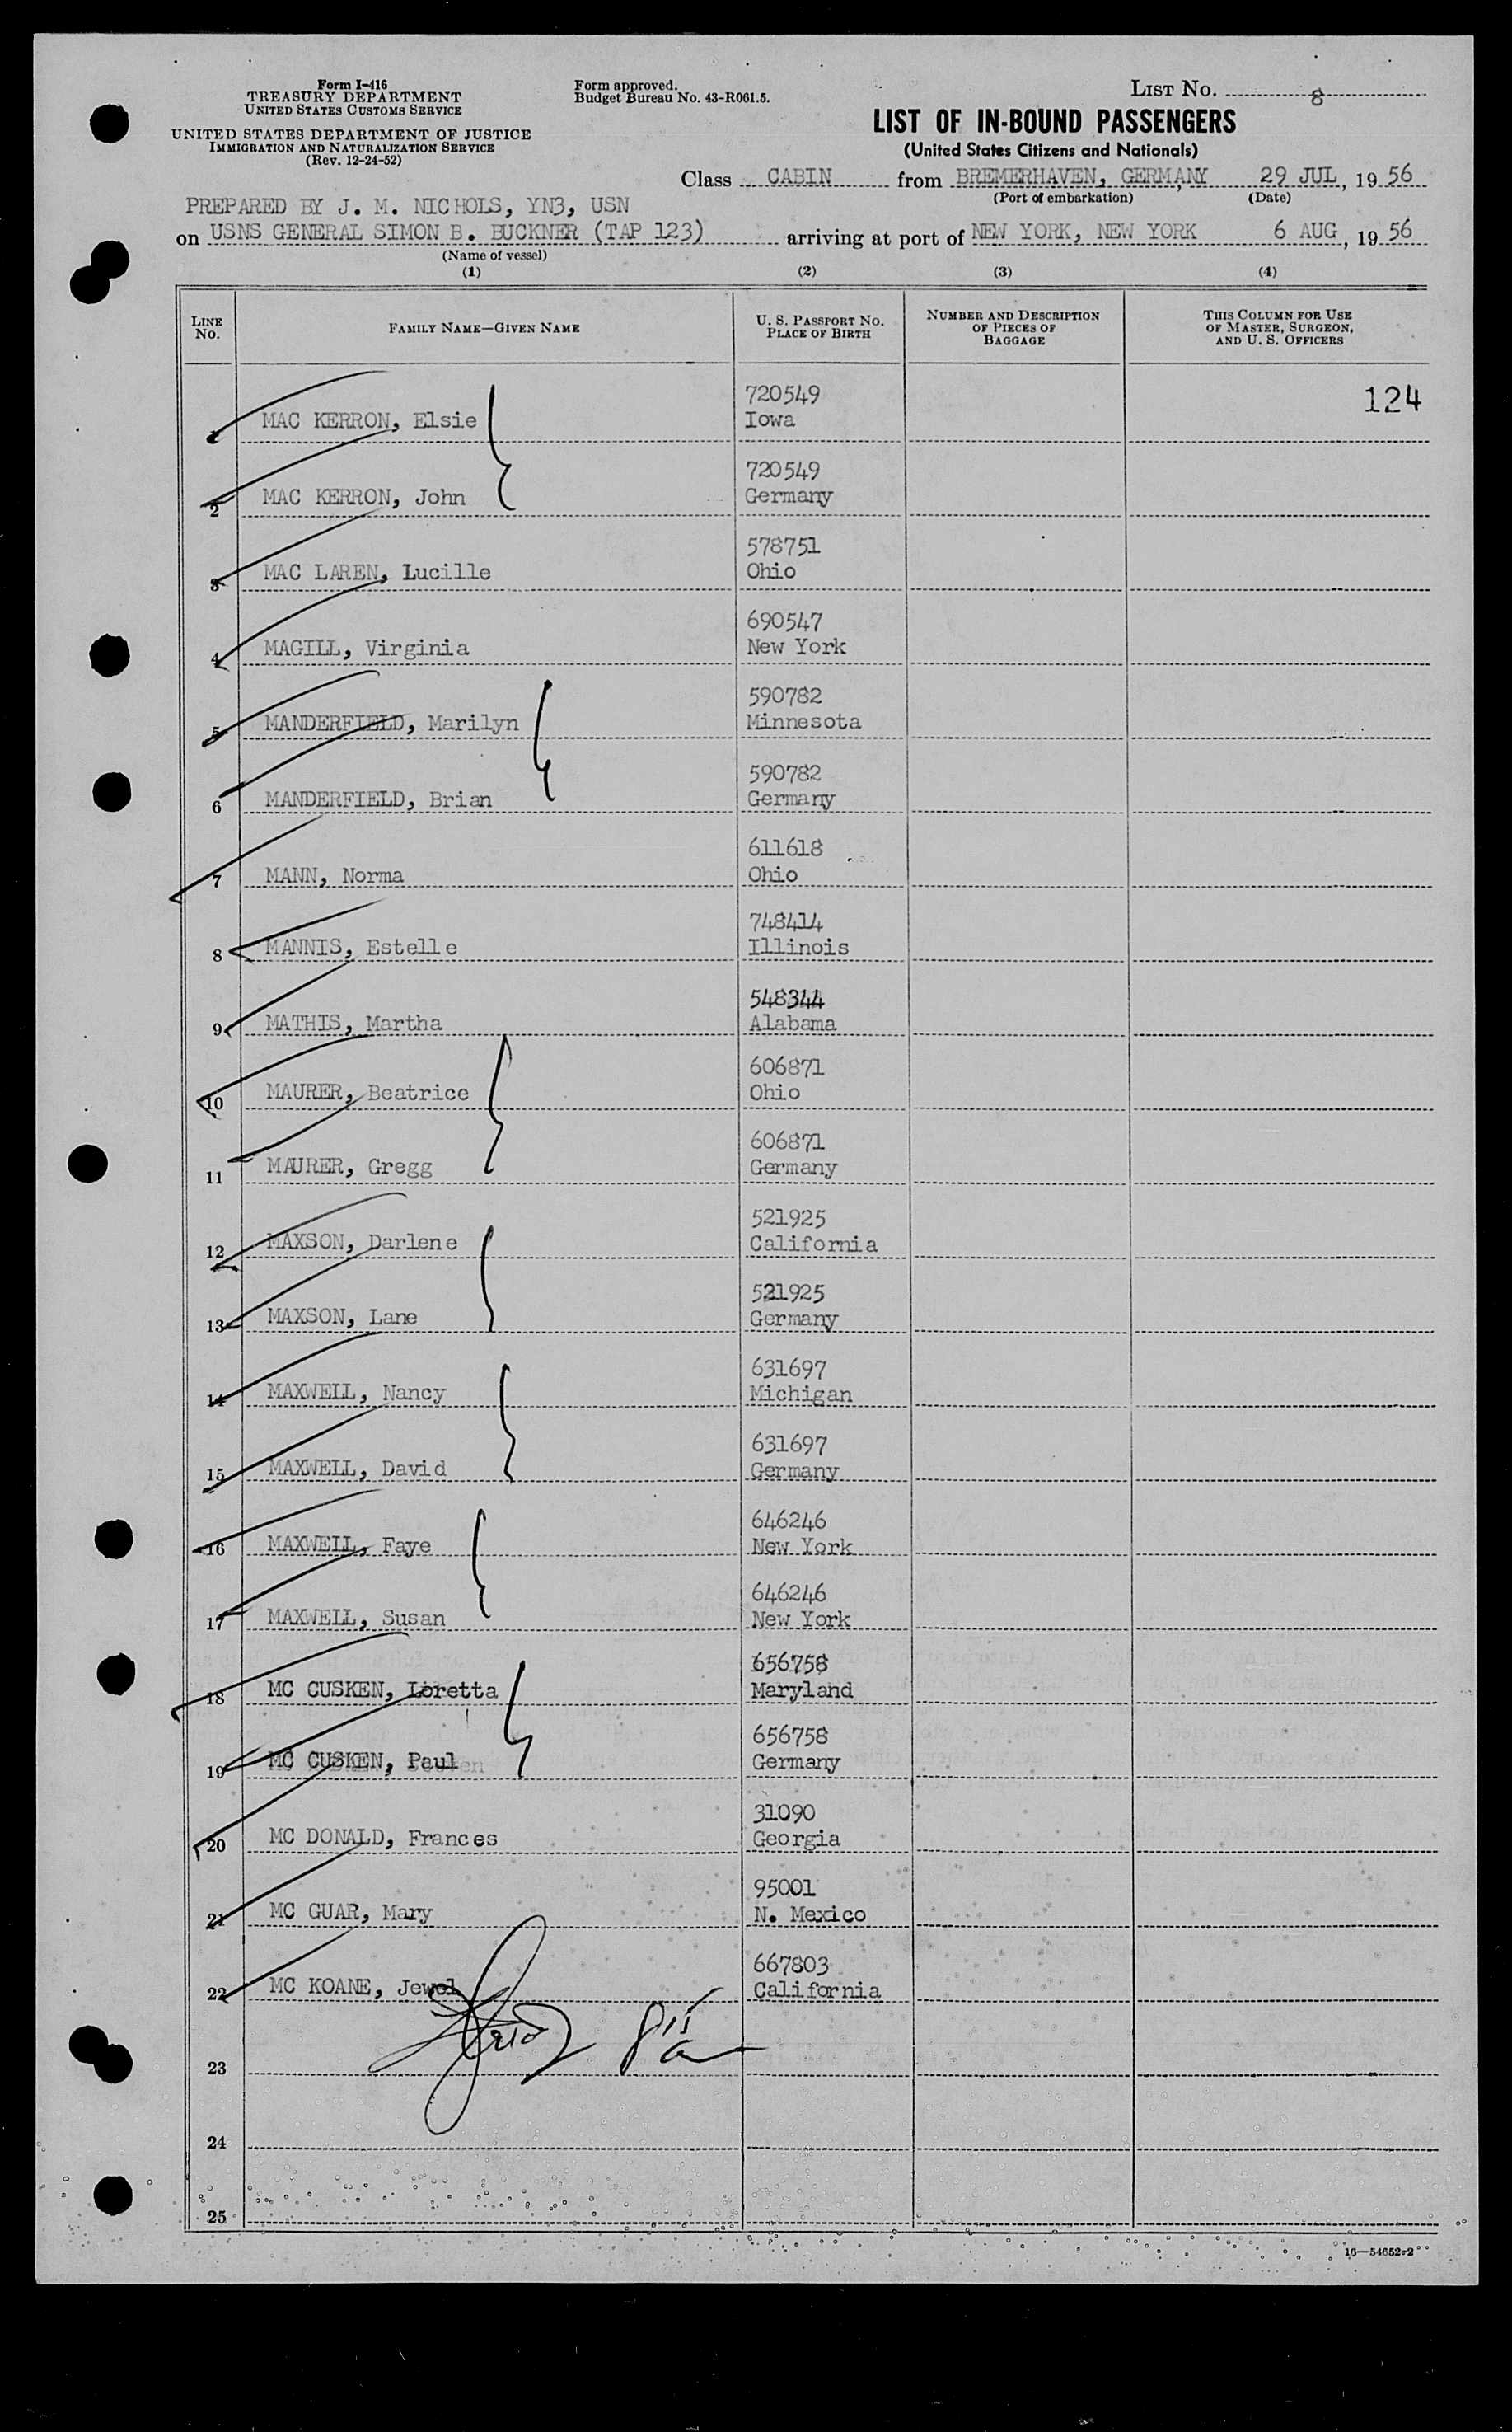 Form I-416
TREASURY DEPARTMENT
UNITED STATES CUSTOMS SERVICE
UNITED STATES DEPARTMENT OF JUSTICE
IMMIGRATION AND NATURALIZATION SERVICE
(Rev. 12-24-52)
Form approved.
Budget Bureau No. 43-R061.5.
LIST NO. 8
LIST OF IN-BOUND PASSENGERS
(United States Citizens and Nationals)
Class CABIN from BREMERHAVEN, GERMANY 29 JUL, 19 56
(Port of embarkation) (Date)
PREPARED BY J. M. NICHOLS, YN3, USN
on USNS GENERAL SIMON B. BUCKNER (TAP 123) arriving at port of NEW YORK, NEW YORK 6 AUG, 19 56
(Name of vessel)
(1) (2) (3) (4)
LINE NO. FAMILY NAME—GIVEN NAME U. S. PASSPORT NO. PLACE OF BIRTH NUMBER AND DESCRIPTION OF PIECES OF BAGGAGE THIS COLUMN FOR USE OF MASTER, SURGEON, AND U. S. OFFICERS
720549 124
1 MAC KERRON, Elsie Iowa
720549
2 MAC KERRON, John Germany
578751
3 MAC LAREN, Lucille Ohio
690547
4 MAGILL, Virginia New York
590782
5 MANDERFIELD, Marilyn Minnesota
590782
6 MANDERFIELD, Brian Germany
611618
7 MANN, Norma Ohio
748414
8 MANNIS, Estelle Illinois
548344
9 MATHIS, Martha Alabama
606871
10 MAURER, Beatrice Ohio
606871
11 MAURER, Gregg Germany
521925
12 MAXSON, Darlene California
521925
13 MAXSON, Lane Germany
631697
14 MAXWELL, Nancy Michigan
631697
15 MAXWELL, David Germany
646246
16 MAXWELL, Faye New York
646246
17 MAXWELL, Susan New York
656758
18 MC CUSKEN, Loretta Maryland
656758
19 MC CUSKEN, Paul Germany
31090
20 MC DONALD, Frances Georgia
95001
21 MC GUAR, Mary N. Mexico
667803
22 MC KOANE, Jewel California
23
24
25
16—54652-2